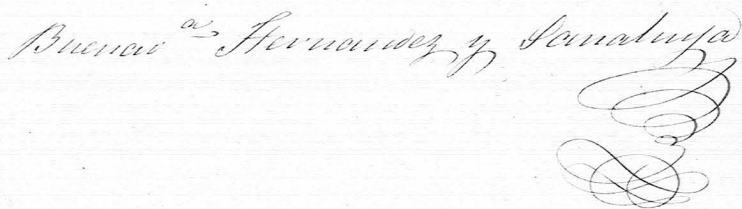 Buenavᵃ Hernandez y Sanahuja